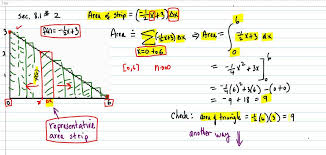 sec. 8.1 # 2
Area of strip = (-½x+3) Δx
f(x) = -½x+3
Area ≐ Σ (-½x+3) Δx ⇒ Area = ∫₀⁶ -½x+3 dx
x=0 to 6
[0,6] n→∞
= -¼x² + 3x ]₀⁶
= -¼(6)² + 3(6) - (0+0)
= -9 + 18 = 9
3
2
1
0
x
Δx
6
representative
area strip
Check: area of triangle = ½(6)(3) = 9
another way